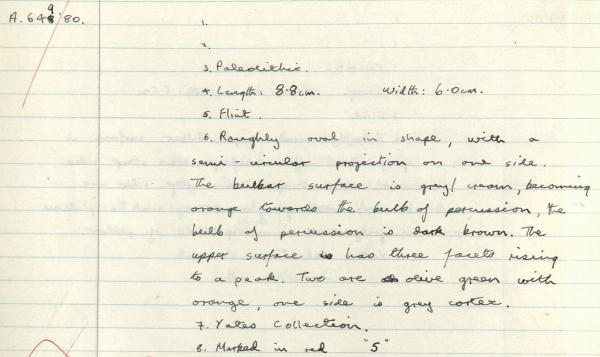 A.649'80.
1.
2.
3. Paleolithic.
4. Length: 8.8cm. Width: 6.0cm.
5. Flint.
6. Roughly oval in shape, with a
semi-circular projection on one side.
The bulbar surface is grey/cream, becoming
orange towards the bulb of percussion, the
bulb of percussion is dark brown. The
upper surface has three facets rising
to a peak. Two are olive green with
orange, one side is grey cortex.
7. Yates Collection.
8. Marked in red "5"